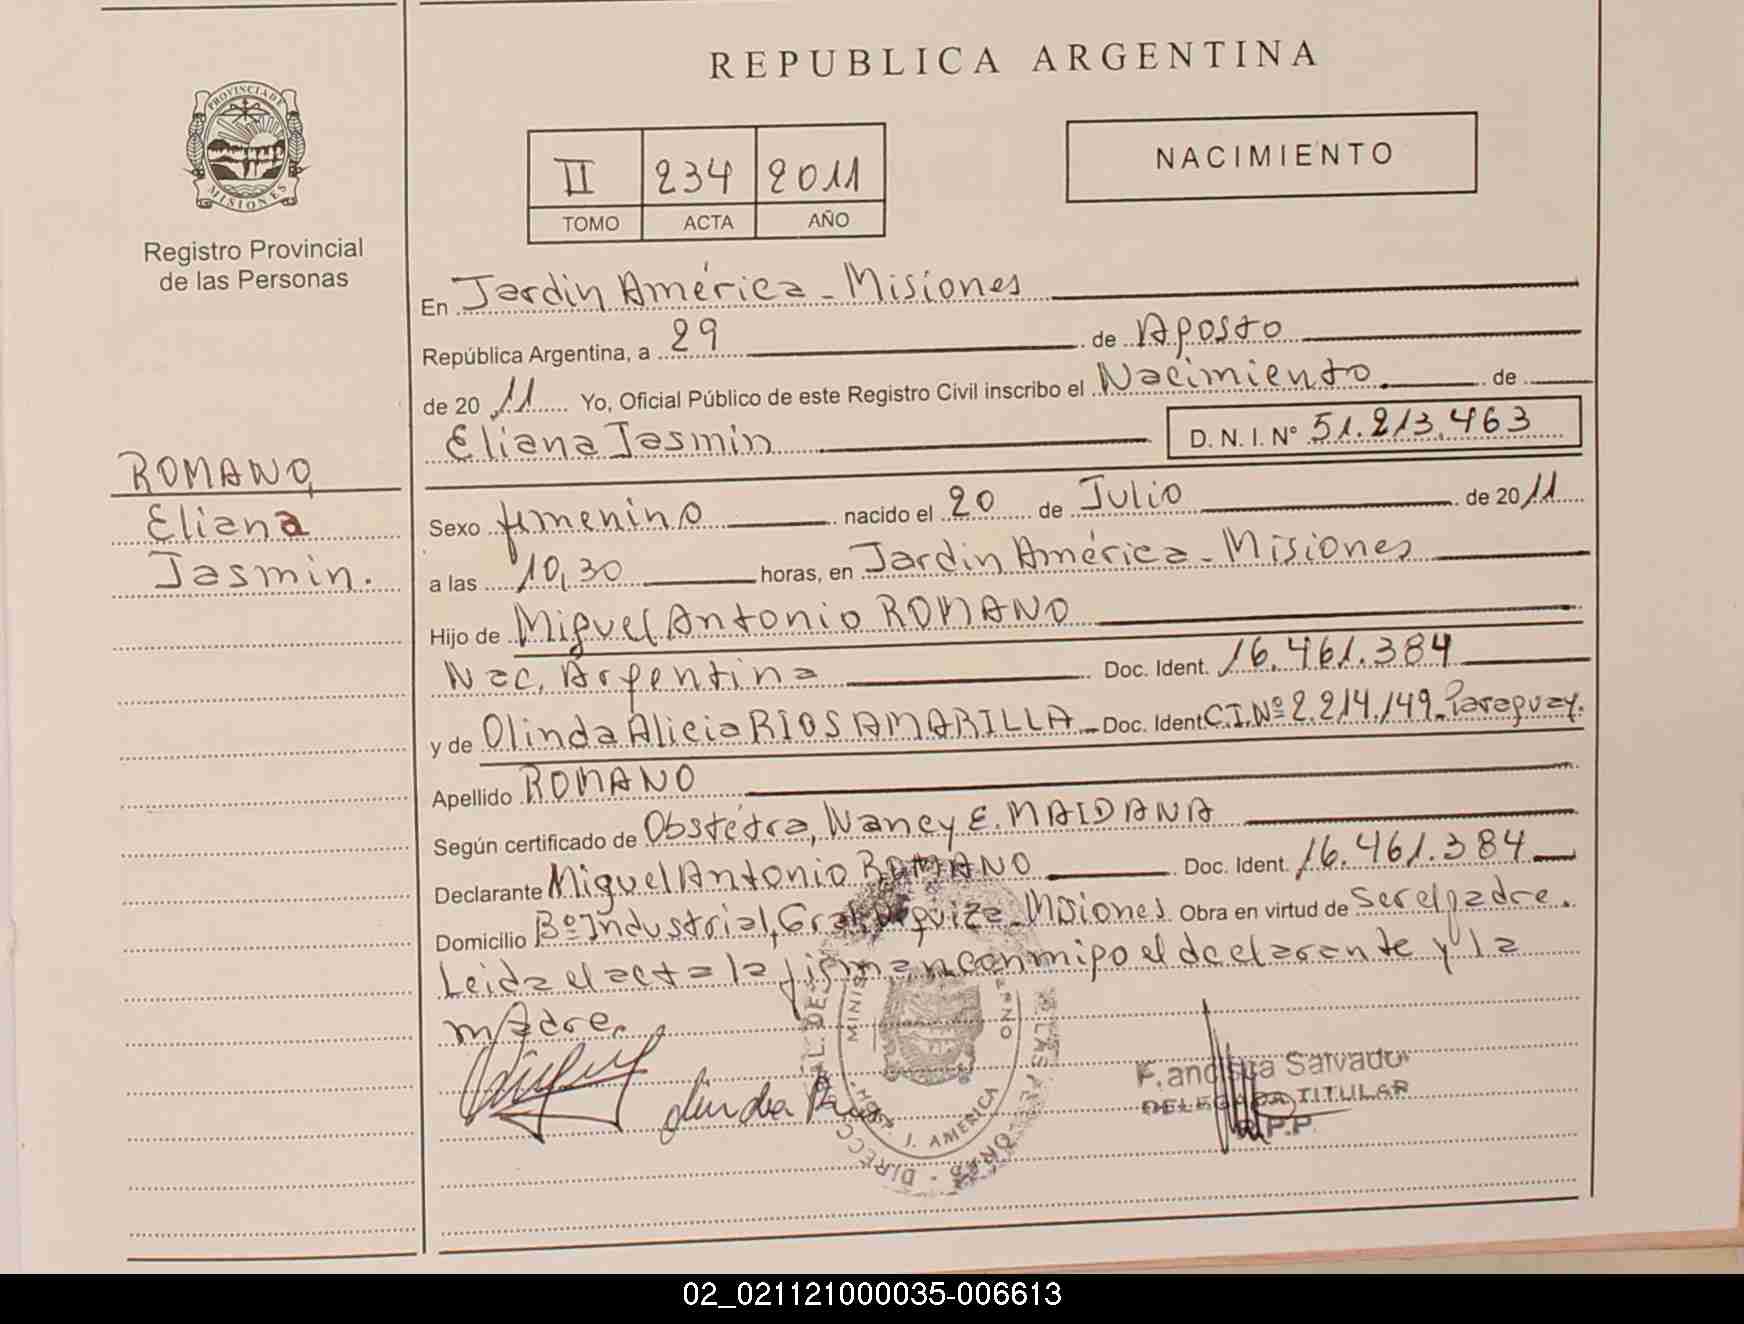 REPUBLICA ARGENTINA
PROVINCIA DE MISIONES
Registro Provincial
de las Personas
II 234 2011
TOMO ACTA AÑO
NACIMIENTO
En Jardin América - Misiones
República Argentina, a 29 de Agosto
de 20 11 Yo, Oficial Público de este Registro Civil inscribo el Nacimiento de
Eliana Jasmin D. N. I. N° 51.213.463
ROMANO,
Eliana
Jasmin.
Sexo femenino nacido el 20 de Julio de 20 11
a las 10,30 horas, en Jardin América - Misiones
Hijo de Miguel Antonio ROMANO
Nac. Argentina Doc. Ident. 16.461.384
y de Olinda Alicia RIOS AMARILLA - Doc. Ident C.I. Nº 2.214.149 - Paraguay.
Apellido ROMANO
Según certificado de Obstétra, Nancy E. MAIDANA
Declarante Miguel Antonio ROMANO Doc. Ident. 16.461.384
Domicilio Bº Industrial, Gral. Urquiza - Misiones Obra en virtud de ser el padre.
Leida el acta la firman conmigo el declarante y la
madre.
J. AMERICA
Francisca Salvador
DELEGADA TITULAR
R.P.P.
02_021121000035-006613